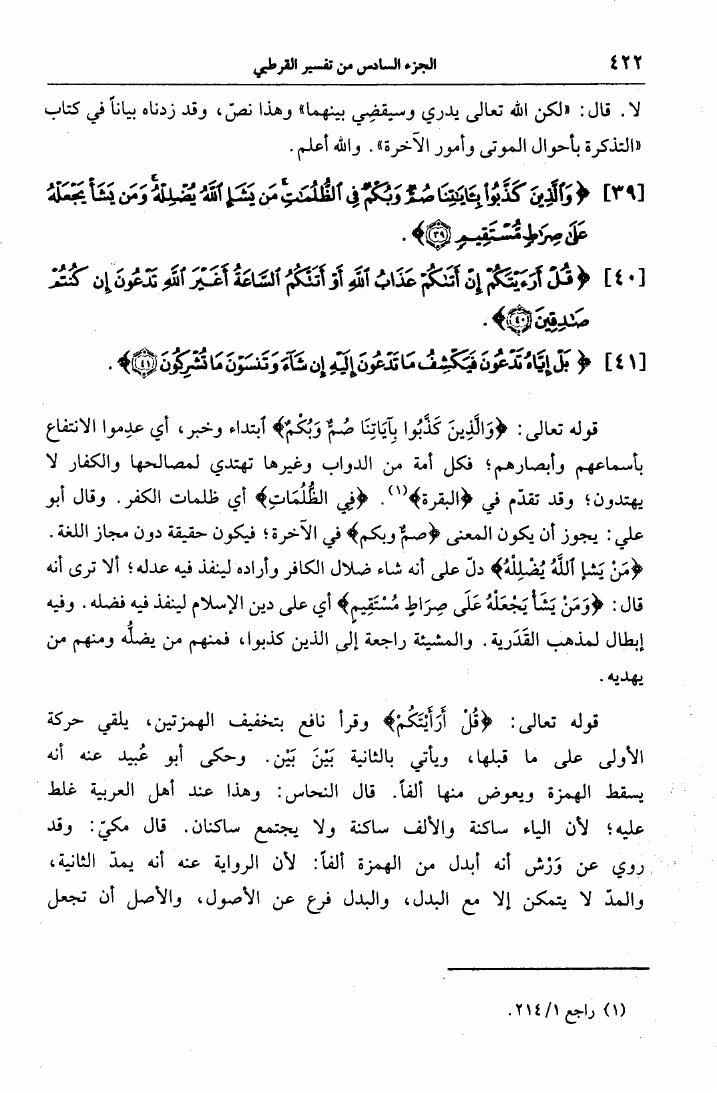 ٤٢٢ الجزء السادس من تفسير القرطبي
لا. قال: «لكن الله تعالى يدري وسيقضِي بينهما» وهذا نصّ، وقد زدناه بياناً في كتاب
«التذكرة بأحوال الموتى وأمور الآخرة». والله أعلم.
[٣٩] ﴿ وَٱلَّذِينَ كَذَّبُوا۟ بِـَٔايَـٰتِنَا صُمٌّ وَبُكْمٌ فِى ٱلظُّلُمَـٰتِ مَن يَشَإِ ٱللَّهُ يُضْلِلْهُ وَمَن يَشَأْ يَجْعَلْهُ
عَلَىٰ صِرَٰطٍ مُّسْتَقِيمٍ ٣٩ ﴾.
[٤٠] ﴿ قُلْ أَرَءَيْتَكُمْ إِنْ أَتَىٰكُمْ عَذَابُ ٱللَّهِ أَوْ أَتَتْكُمُ ٱلسَّاعَةُ أَغَيْرَ ٱللَّهِ تَدْعُونَ إِن كُنتُمْ
صَـٰدِقِينَ ٤٠ ﴾.
[٤١] ﴿ بَلْ إِيَّاهُ تَدْعُونَ فَيَكْشِفُ مَا تَدْعُونَ إِلَيْهِ إِن شَآءَ وَتَنسَوْنَ مَا تُشْرِكُونَ ٤١ ﴾.
قوله تعالى: ﴿وَالَّذِينَ كَذَّبُوا بِآيَاتِنَا صُمٌّ وَبُكْمٌ﴾ ٱبتداء وخبر، أي عدِموا الانتفاع
بأسماعهم وأبصارهم؛ فكل أمة من الدواب وغيرها تهتدي لمصالحها والكفار لا
يهتدون؛ وقد تقدّم في ﴿البقرة﴾(١). ﴿فِي الظُّلُمَاتِ﴾ أي ظلمات الكفر. وقال أبو
علي: يجوز أن يكون المعنى ﴿صمٌّ وبكم﴾ في الآخرة؛ فيكون حقيقة دون مجاز اللغة.
﴿مَنْ يَشَإِ ٱللَّهُ يُضْلِلْهُ﴾ دلّ على أنه شاء ضلال الكافر وأراده لينفذ فيه عدله؛ ألا ترى أنه
قال: ﴿وَمَنْ يَشَأْ يَجْعَلْهُ عَلَى صِرَاطٍ مُسْتَقِيمٍ﴾ أي على دين الإسلام لينفذ فيه فضله. وفيه
إبطال لمذهب القَدَرية. والمشيئة راجعة إلى الذين كذبوا، فمنهم من يضلُّه ومنهم من
يهديه.
قوله تعالى: ﴿قُلْ أَرَأَيْتَكُمْ﴾ وقرأ نافع بتخفيف الهمزتين، يلقي حركة
الأولى على ما قبلها، ويأتي بالثانية بَيْنَ بَيْن. وحكى أبو عُبيد عنه أنه
يسقط الهمزة ويعوض منها ألفاً. قال النحاس: وهذا عند أهل العربية غلط
عليه؛ لأن الياء ساكنة والألف ساكنة ولا يجتمع ساكنان. قال مكيّ: وقد
روي عن وَرْش أنه أبدل من الهمزة ألفاً: لأن الرواية عنه أنه يمدّ الثانية،
والمدّ لا يتمكن إلا مع البدل، والبدل فرع عن الأصول، والأصل أن تجعل
(١) راجع ٢١٤/١.